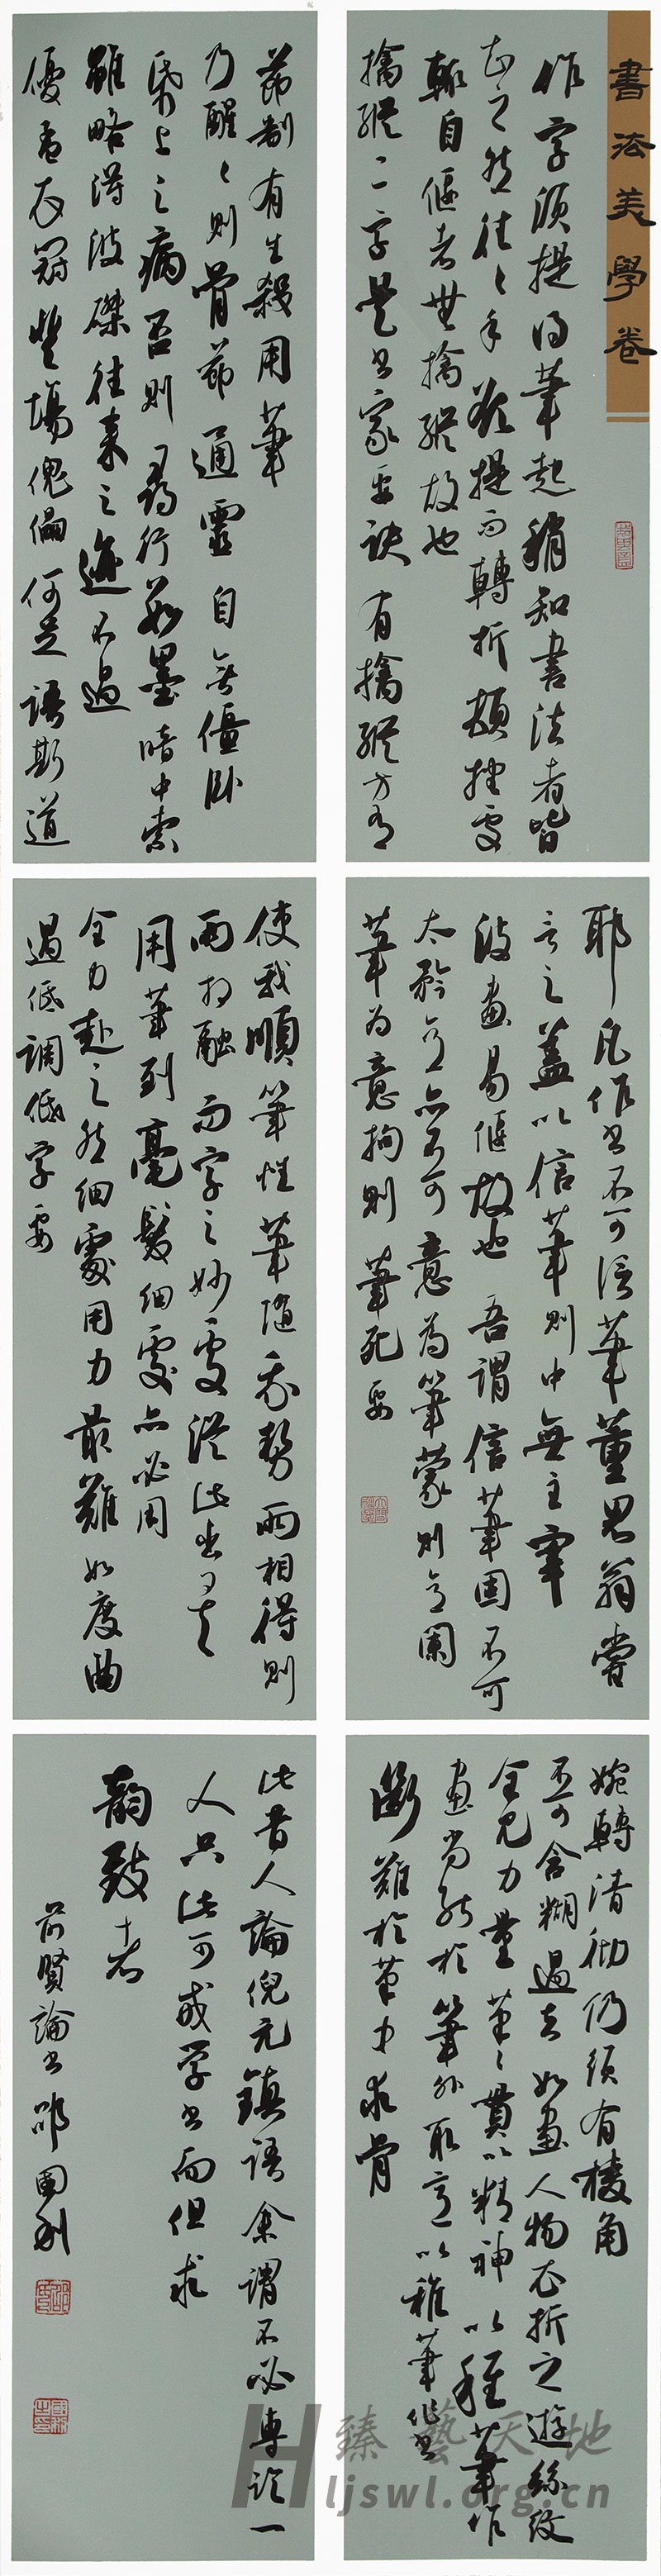 書法美學卷
作字須提得筆起稍知書法者皆
知之然往々手欲提而轉折頓挫處
輒自偃者無擒縱故也
擒縱二字是書家要訣有擒縱方有
節制有生殺用筆
乃醒々則骨節通靈自無僵臥
紙上之病否則尋行數墨暗中索
雖略得波磔往來之跡不過
優孟衣冠登場傀儡何足語斯道
耶凡作書不可信筆董思翁嘗
言之蓋以信筆則中無主宰
波畫易偃故也吾謂信筆固不可
太矜意亦不可意為筆蒙則意闌
筆為意拘則筆死要
使我順筆性筆隨我勢兩相得則
兩相融而字之妙處從此出矣
用筆到毫髮細處亦必用
全力赴之然細處用力最難如度曲
過低調低字要
婉轉清徹仍須有棱角
不可含糊過去如畫人物衣折之遊絲紋
全見力量筆々貫以精神以稚筆作
畫尚能於筆外取意以稚筆作書
斷難於筆中求骨
此昔人論倪元鎮語余謂不必專論一
人只此可戒學書而但求
韻致者
前賢論書 邵國利
臻藝天地
Hljswl.org.cn